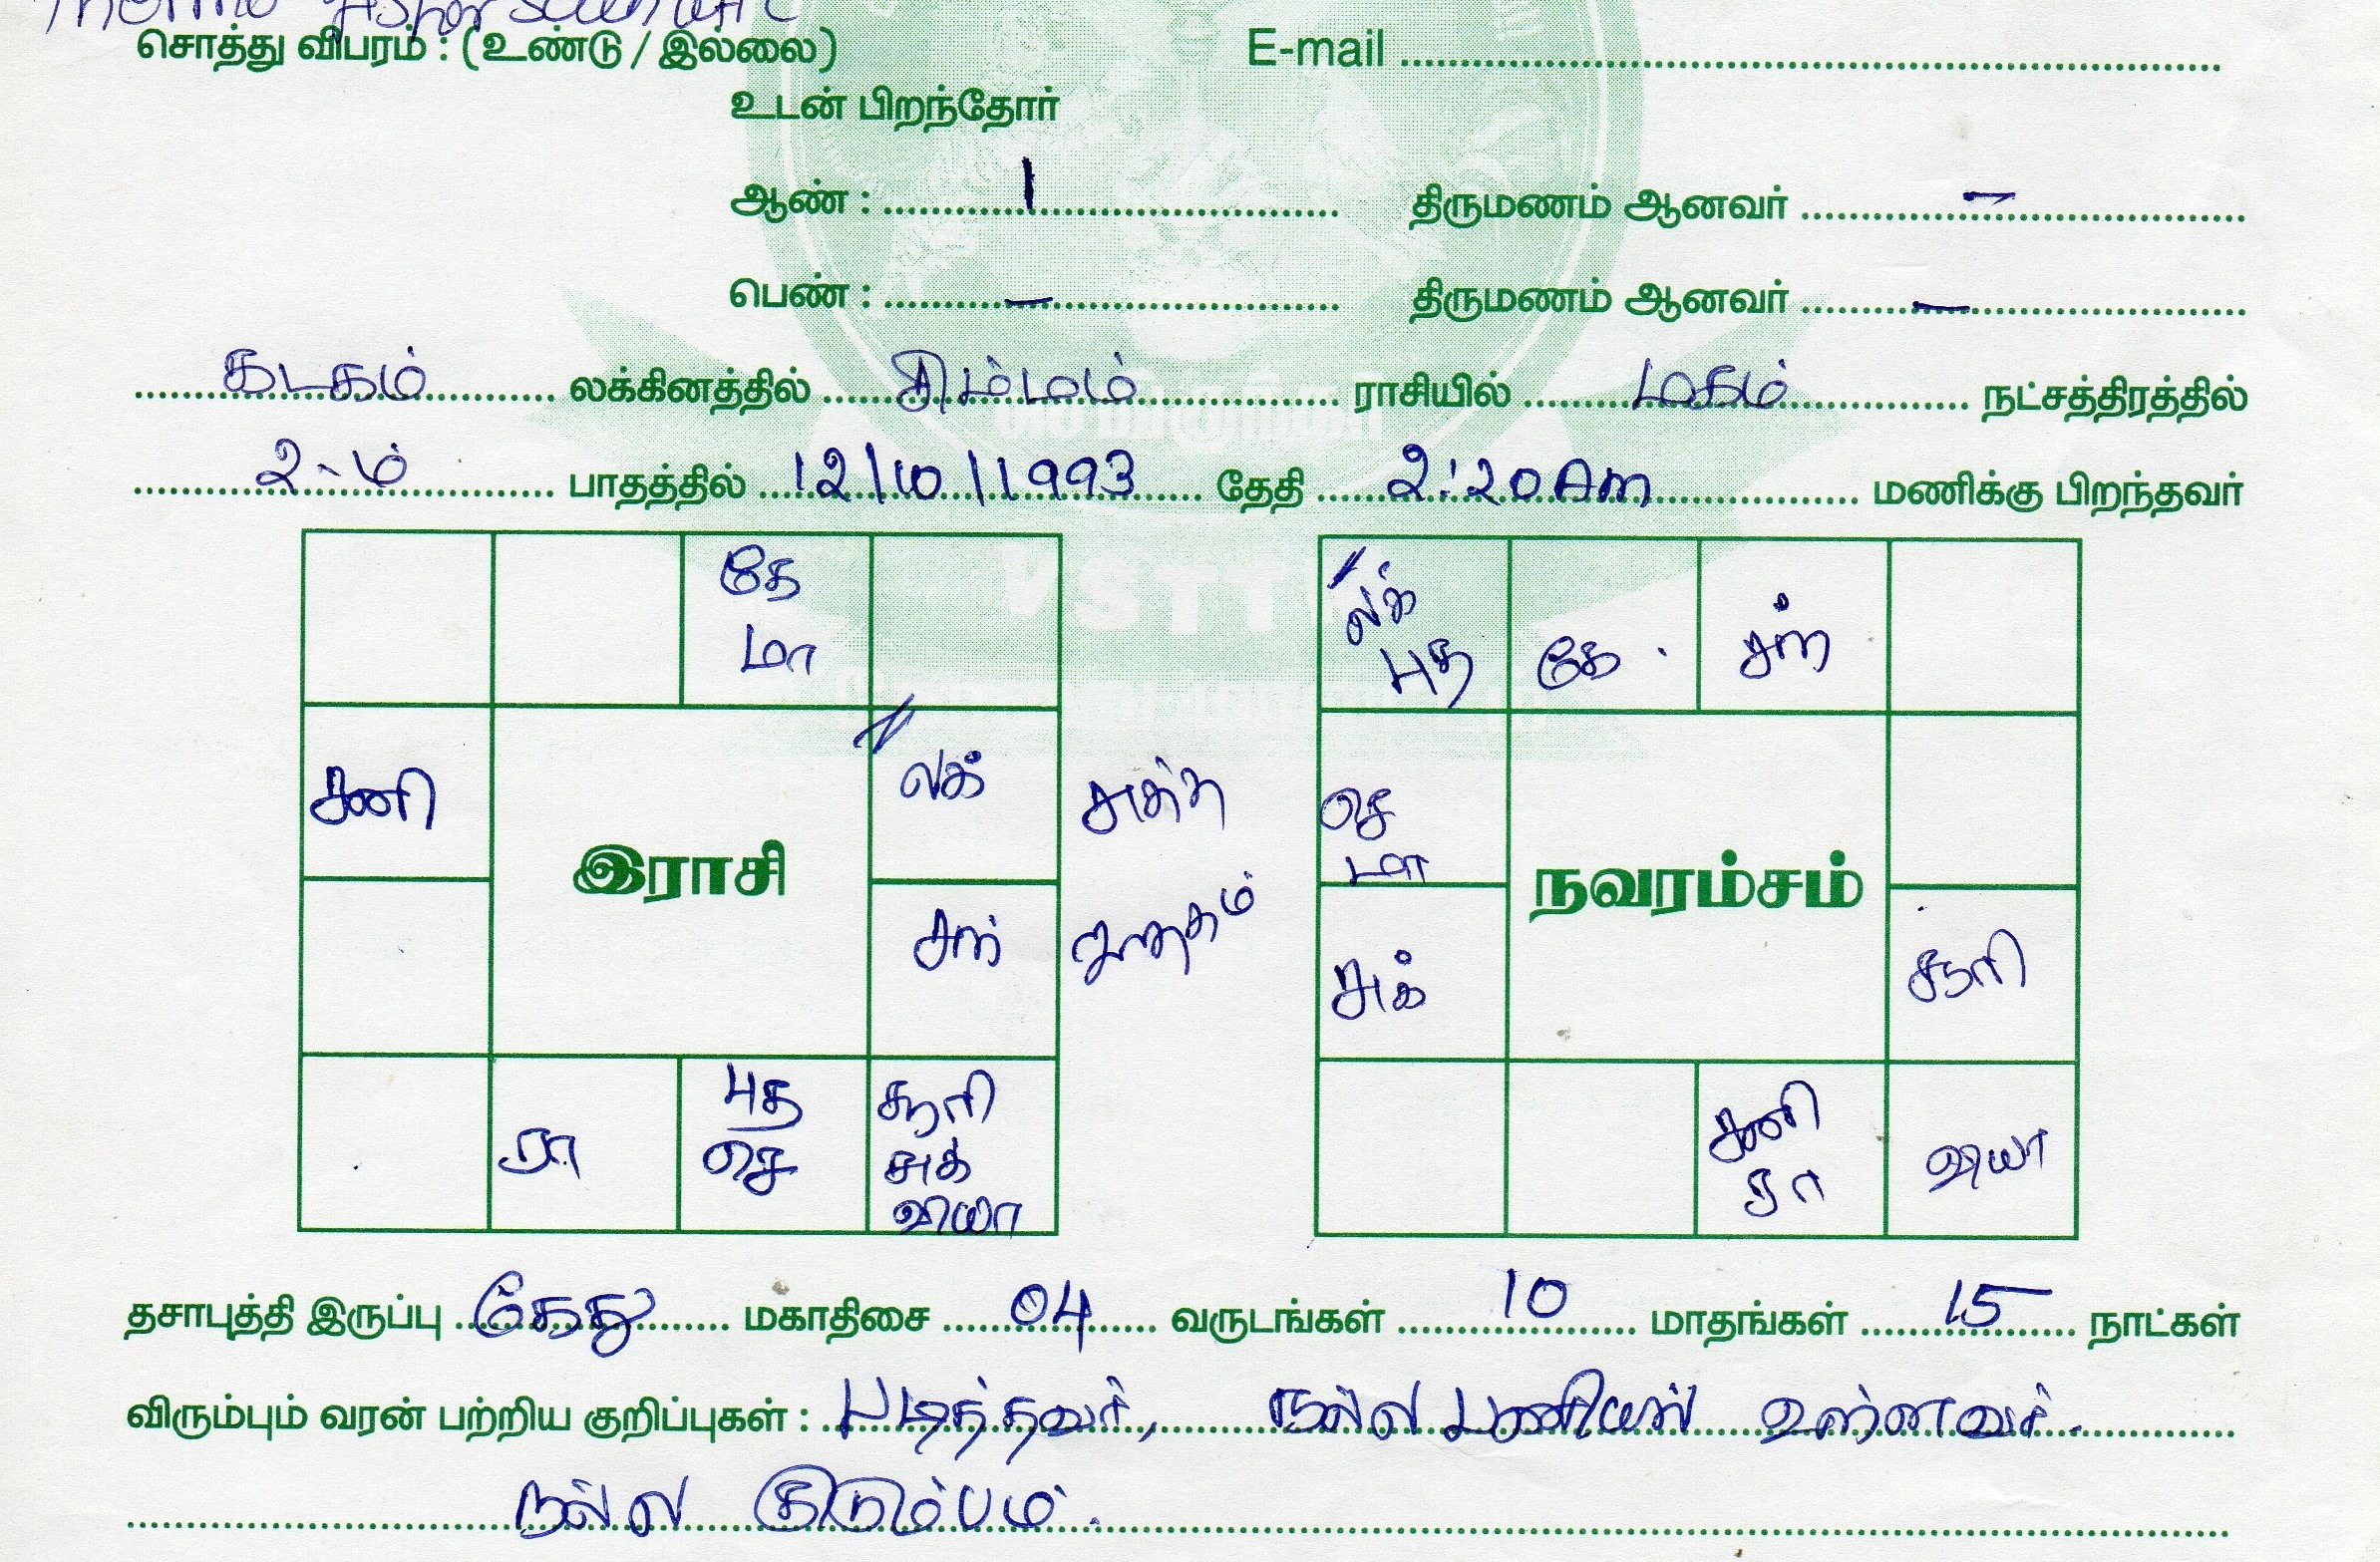 சொத்து விபரம் : (உண்டு / இல்லை) E-mail
உடன் பிறந்தோர்
ஆண் : 1 திருமணம் ஆனவர் –
பெண் : – திருமணம் ஆனவர் –
கடகம் லக்கினத்தில் சிம்மம் ராசியில் மகம் நட்சத்திரத்தில்
2-ம் பாதத்தில் 12/10/1993 தேதி 2:20 Am மணிக்கு பிறந்தவர்
கே
மா
லக்
சனி
இராசி
சந்
புத
செ
ரா
சூரி
சுக்
வியா
லக்
புத
கே
சந்
செ
மா
நவரம்சம்
சுக்
சூரி
சனி
ரா
வியா
தசாபுத்தி இருப்பு கேது மகாதிசை 04 வருடங்கள் 10 மாதங்கள் 15 நாட்கள்
விரும்பும் வரன் பற்றிய குறிப்புகள் : படித்தவர், நல்ல பணியில் உள்ளவர்.
நல்ல குடும்பம்.